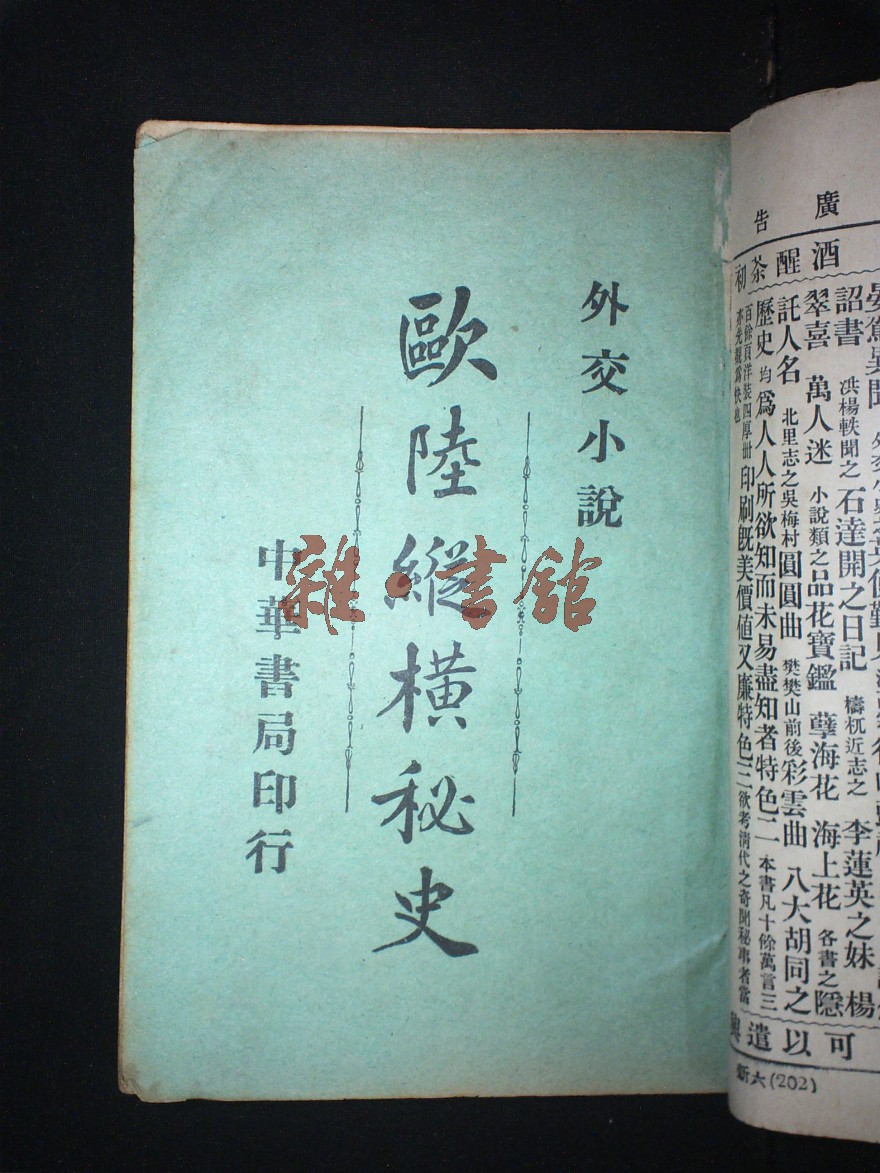 外交小說
歐陸縱橫秘史
中華書局印行
雜·書館
廣告
酒醒茶初
晏駕異聞
詔書 洪楊軼聞之 石達開之日記 檮杌近志之 李蓮英之妹 楊
翠喜 萬人迷 小說類之品花寶鑑 孽海花 海上花 各書之隱
託人名 北里志之吳梅村圓圓曲 樊樊山前後彩雲曲 八大胡同之
歷史 均爲人人所欲知而未易盡知者特色二 本書凡十餘萬言三
百餘頁洋裝四厚册 印刷既美價值又廉特色三 欲考淸代之奇聞秘事者當
亦先覩爲快也
可以遣興
新六(202)